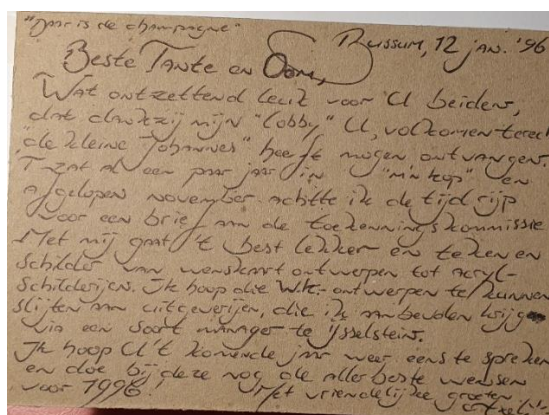 "Daar is de champagne"
Bussum, 12 jan. '96
Beste Tante en Oom,
Wat ontzettend leuk voor U beiden,
dat dankzij mijn "lobby" U, volkomen terecht
"de kleine Johannes" heeft mogen ontvangen.
'T zat al een paar jaar in "m'n kop" en
afgelopen november achtte ik de tijd rijp
voor een brief aan de toekenningskommissie
Met mij gaat 't best lekker en teken en
schilder van wenskaart ontwerpen tot acryl-
schilderijen. Ik hoop die wk.-ontwerpen te kunnen
slijten aan uitgeverijen, die ik aanbevolen krijg
via een soort manager te IJsselstein.
Ik hoop U 't komende jaar weer eens te spreken
en doe bij deze nog de aller beste wensen
voor 1996!
Met vriendelijke groeten,